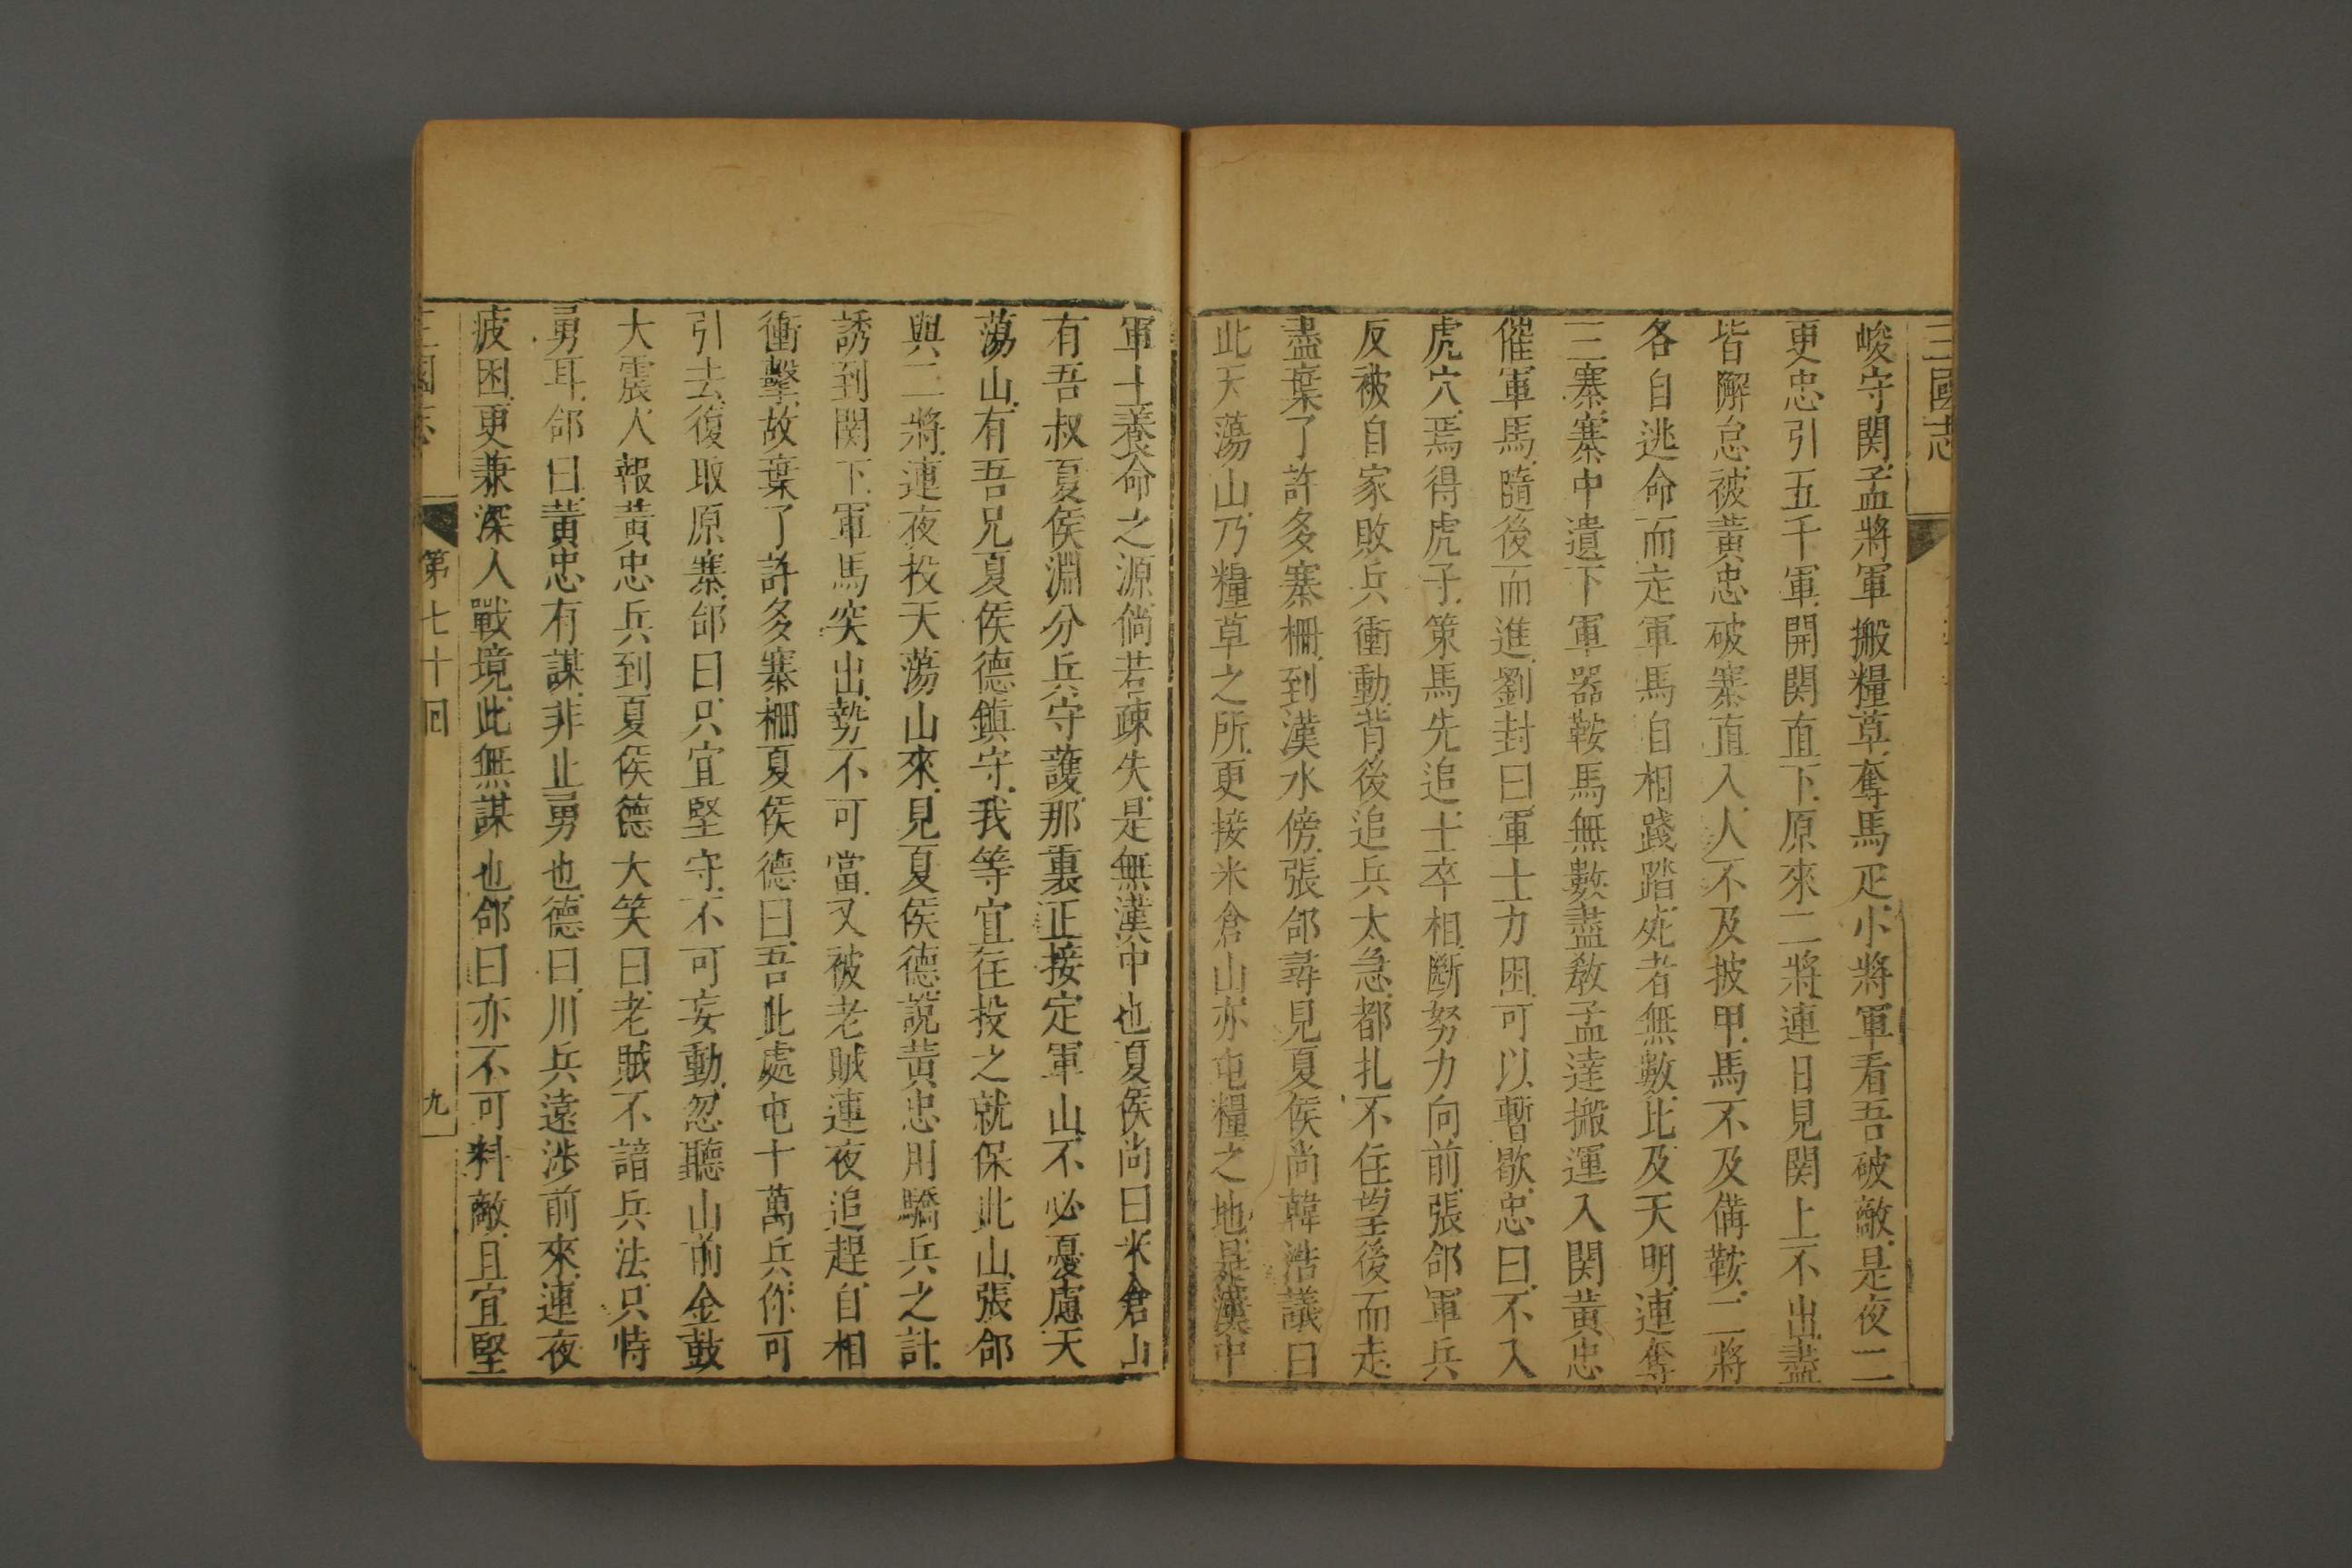 三國志
峻守関孟將軍搬糧草奪馬疋小將軍看吾破敵是夜二
更忠引五千軍開関直下原來二將連日見関上不出盡
皆懈怠被黃忠破寨直入人不及披甲馬不及備鞍二將
各自逃命而走軍馬自相踐踏死者無數比及天明連奪
三寨寨中遺下軍器鞍馬無數盡教孟達搬運入関黃忠
催軍馬隨後而進劉封曰軍士力困可以暫歇忠曰不入
虎穴焉得虎子策馬先追士卒相斷努力向前張郃軍兵
反被自家敗兵衝動背後追兵太急都扎不住望後而走
盡棄了許多寨柵到漢水傍張郃尋見夏侯尚韓浩議曰
此天蕩山乃糧草之所更接米倉山亦屯糧之地是漢中
軍士養命之源倘若疎失是無漢中也夏侯尚曰米倉山
有吾叔夏侯淵分兵守護那裏正接定軍山不必憂慮天
蕩山有吾兄夏侯德鎮守我等宜往投之就保此山張郃
與二將連夜投天蕩山來見夏侯德說黃忠用驕兵之計
誘到関下軍馬突出勢不可當又被老賊連夜追趕自相
衝擊故棄了許多寨柵夏侯德曰吾此處屯十萬兵你可
引去復取原寨郃曰只宜堅守不可妄動忽聽山前金鼓
大震人報黃忠兵到夏侯德大笑曰老賊不諳兵法只恃
勇耳郃曰黃忠有謀非止勇也德曰川兵遠涉前來連夜
疲困更兼深入戰境此無謀也郃曰亦不可料敵且宜堅
三國志 第七十回 九